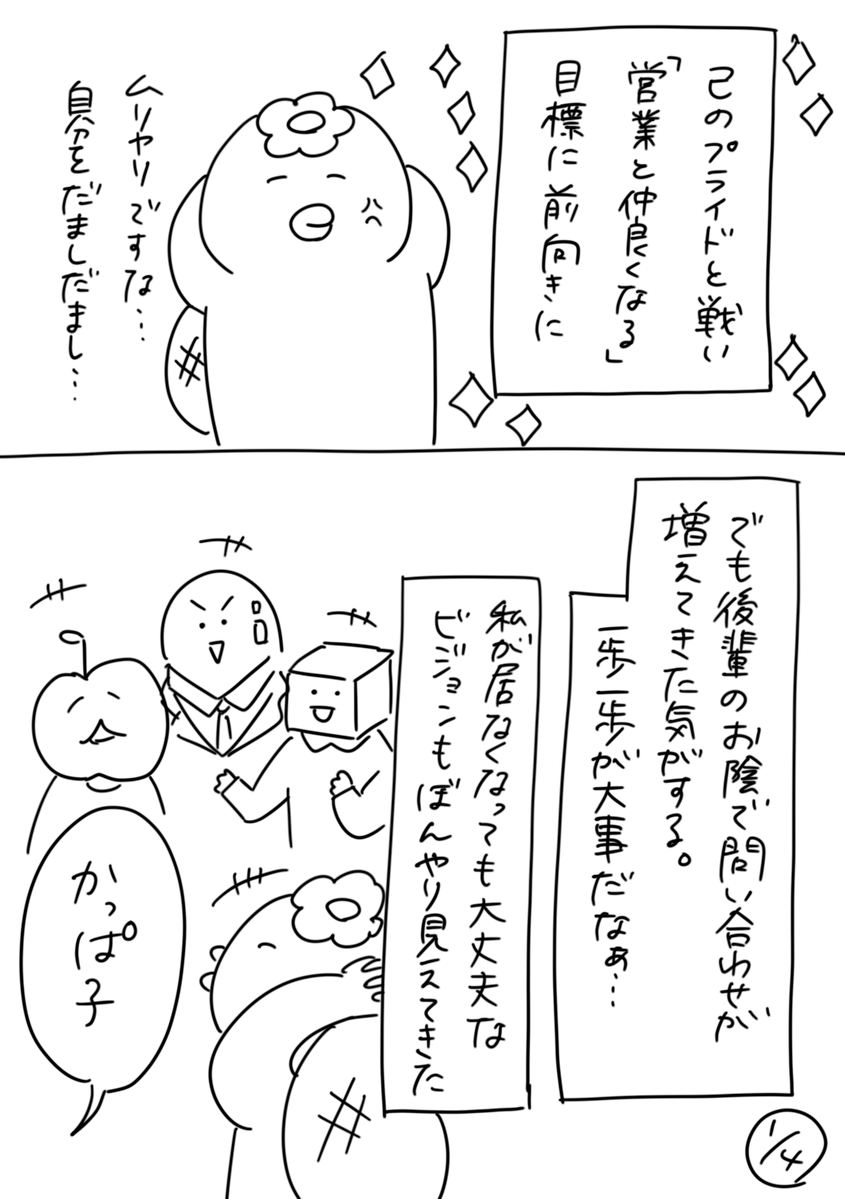 己のプライドと戦い
「営業と仲良くなる」
目標に前向きに
ムリヤリですな…
自分をだましだまし…
でも後輩のお陰で問い合わせが
増えてきた気がする。
一歩一歩が大事だなぁ…
私が居なくなっても大丈夫な
ビジョンもぼんやり見えてきた
かっぱ子
1/4